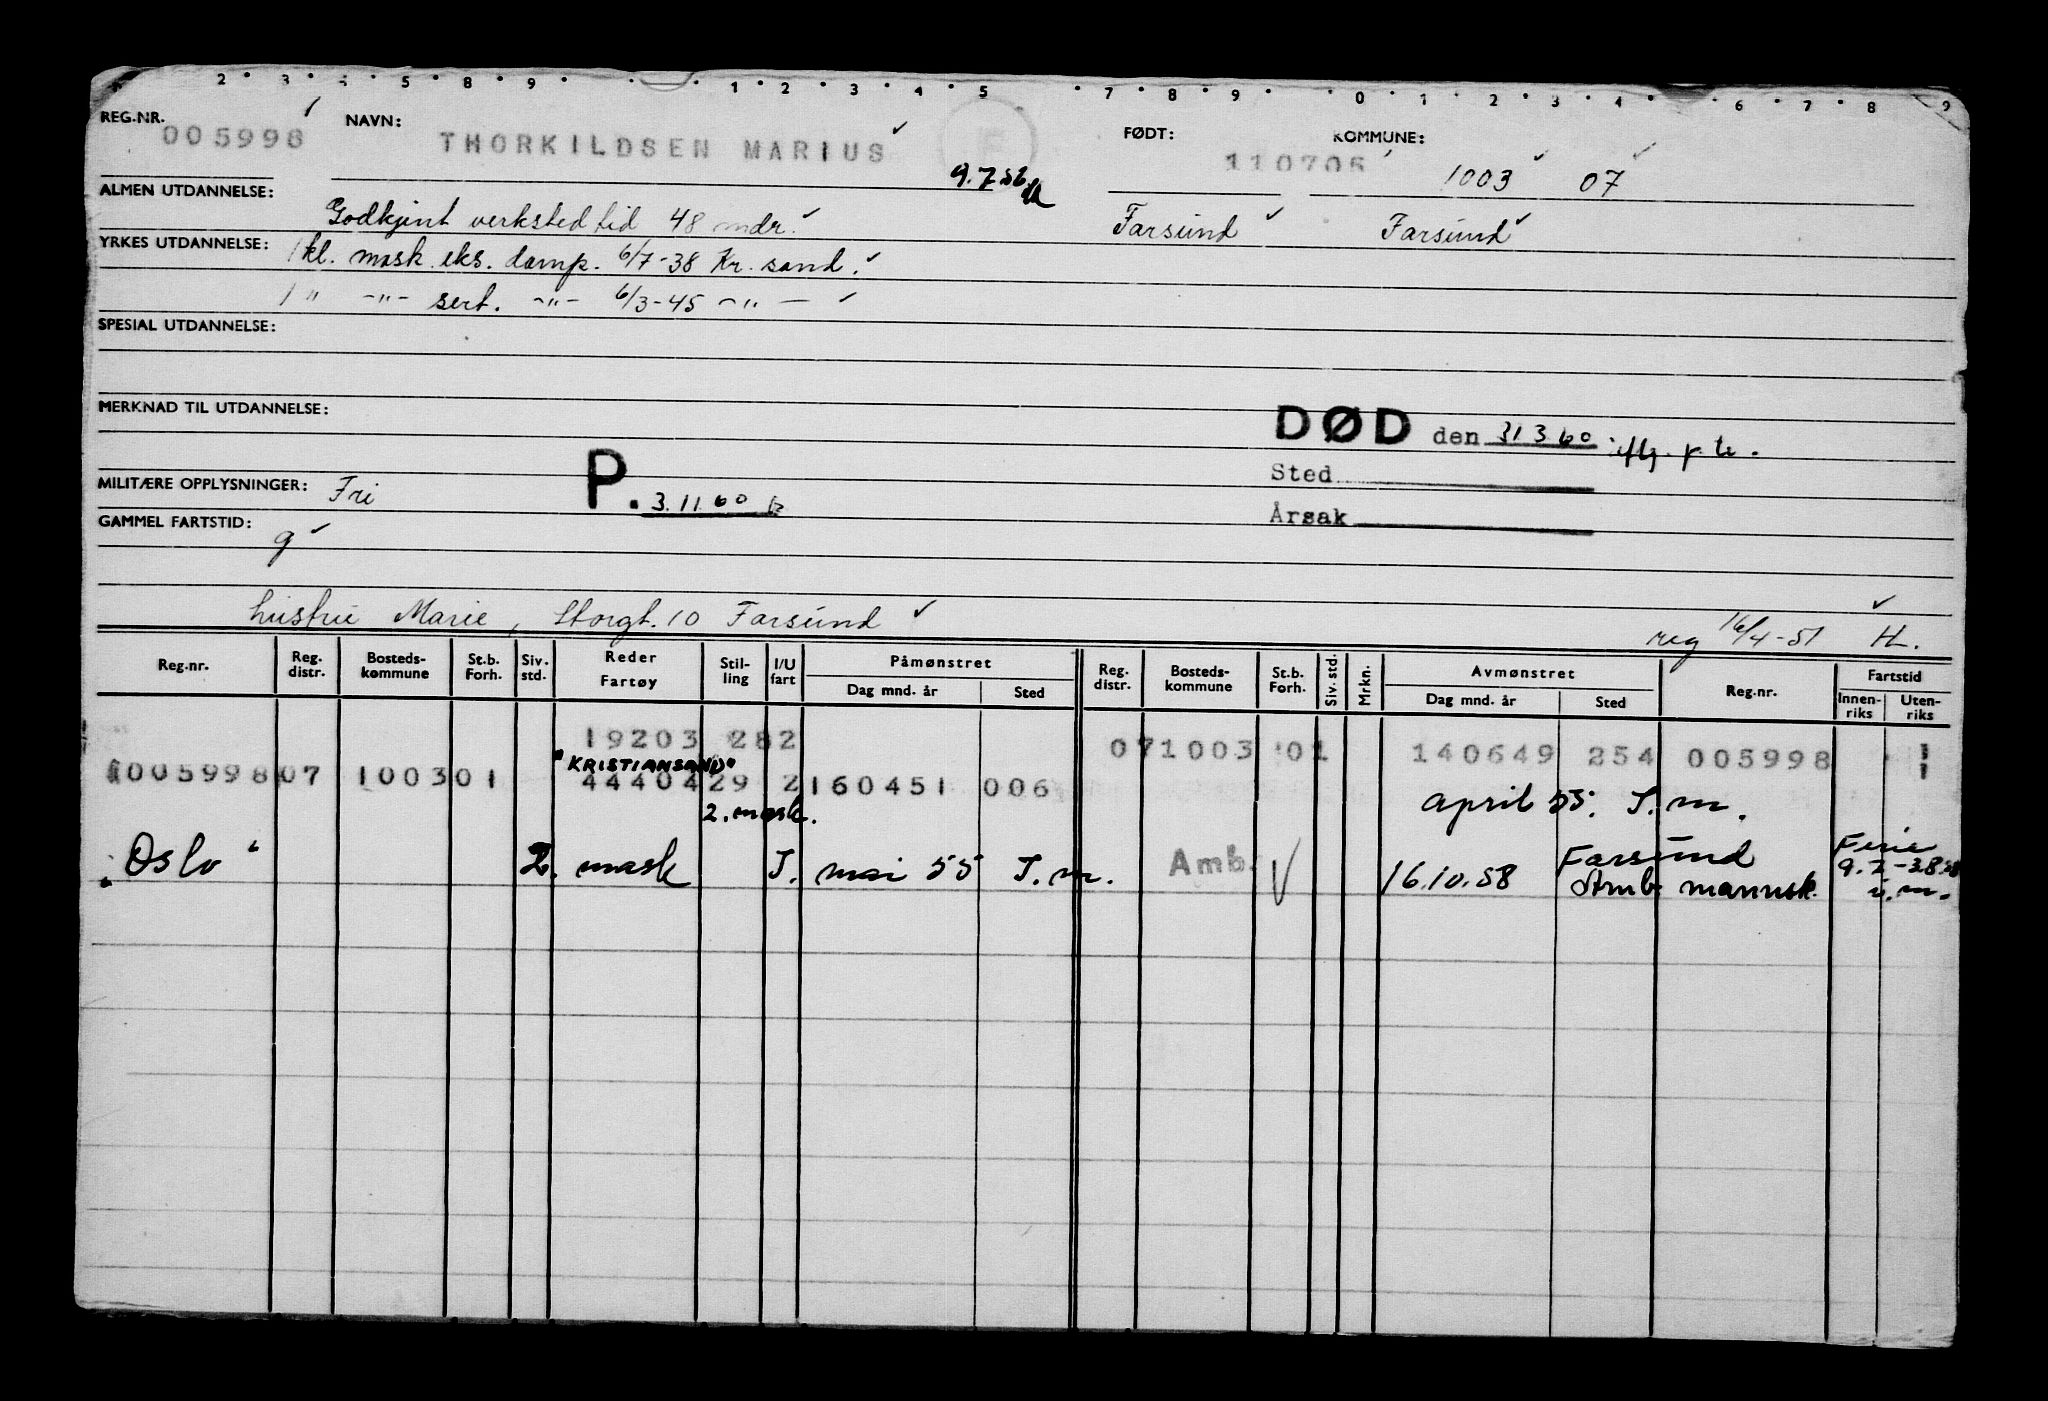 2 3 5 8 9 1 2 3 4 5 7 8 9 0 1 2 3 4 6 7 8 9
REG.NR. NAVN: FØDT: KOMMUNE:
005998 THORKILDSEN MARIUS 110706 1003 07
9.7.56
ALMEN UTDANNELSE: Godkjent verkstedtid 48 mdr. Farsund Farsund
YRKES UTDANNELSE: 1 kl. mask. eks. damp. 6/7-38 Kr.sand.
1 " -"- sert. -"- 6/3-45 -"-
SPESIAL UTDANNELSE:
MERKNAD TIL UTDANNELSE:
DØD den 31 3 60 iflg.
Sted
MILITÆRE OPPLYSNINGER: Fri P. 3.11.60
Årsak
GAMMEL FARTSTID: g
hustru Marie, Storgt. 10 Farsund reg 16/4-51 H.
Reg.nr. Reg. distr. Bosteds-kommune St.b. Forh. Siv. std. Reder Fartøy Stil-ling I/U fart Påmønstret Dag mnd. år Sted Reg. distr. Bosteds-kommune St.b. Forh. Siv. std. Mrkn. Avmønstret Dag mnd. år Sted Reg.nr. Fartstid Innen-riks Uten-riks
19203 282 071003 01 140649 254 005998
"KRISTIANSAND"
005998 07 1003 01 44404 29 2 160451 006
2. mask. april 55. T.m.
"Oslo" 2. mask T. mai 55 T.m. Amb. 16.10.58 Farsund Ferie
Amb. mannsk. 9.7-3.8.58
u.m.